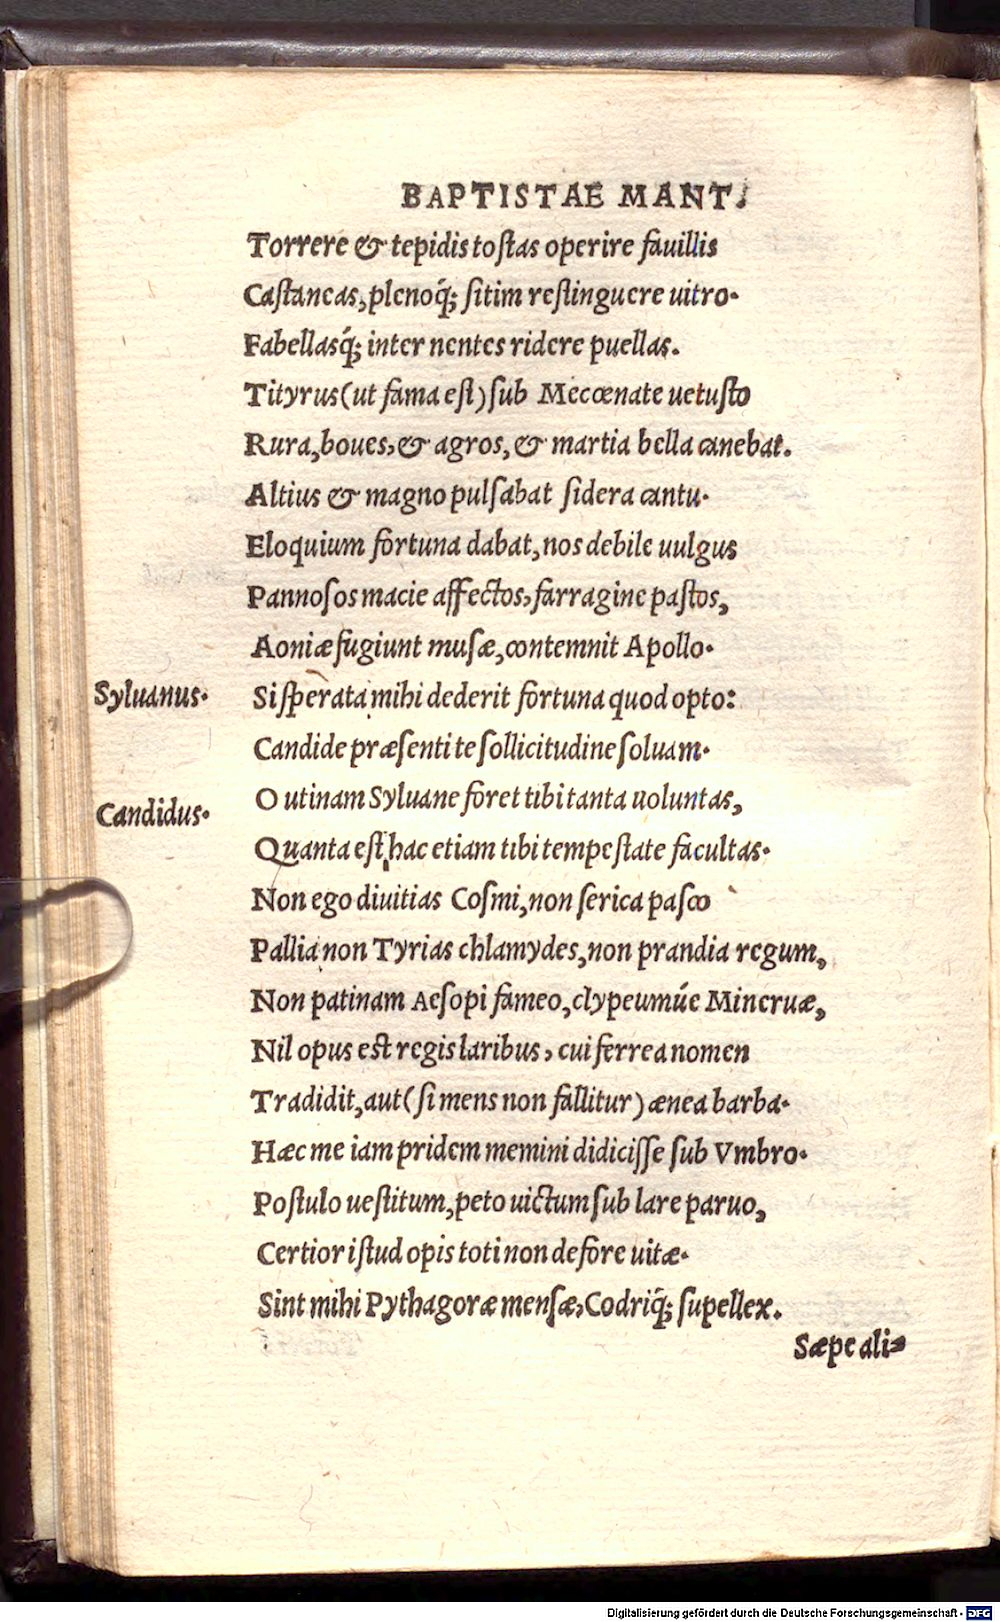 BAPTISTAE MANT.
Torrere & tepidis tostas operire fauillis
Castaneas, plenoq́; sitim restinguere uitro.
Fabellasq́; inter nentes ridere puellas.
Tityrus (ut fama est) sub Mecœnate uetusto
Rura, boues, & agros, & martia bella canebat.
Altius & magno pulsabat sidera cantu.
Eloquium fortuna dabat, nos debile uulgus
Pannosos macie affectos, farragine pastos,
Aoniæ fugiunt musæ, contemnit Apollo.
Syluanus. Si sperata mihi dederit fortuna quod opto:
Candide præsenti te sollicitudine soluam.
Candidus. O utinam Syluane foret tibi tanta uoluntas,
Quanta est hac etiam tibi tempestate facultas.
Non ego diuitias Cosmi, non serica pasco
Pallia non Tyrias chlamydes, non prandia regum,
Non patinam Aesopi fameo, clypeumúe Mineruæ,
Nil opus est regis laribus, cui ferrea nomen
Tradidit, aut (si mens non fallitur) ænea barba.
Hæc me iam pridem memini didicisse sub Vmbro.
Postulo uestitum, peto uictum sub lare paruo,
Certior istud opis toti non defore uitæ.
Sint mihi Pythagoræ mensæ, Codriq́; supellex.
Sæpe ali-
Digitalisierung gefördert durch die Deutsche Forschungsgemeinschaft - DFG